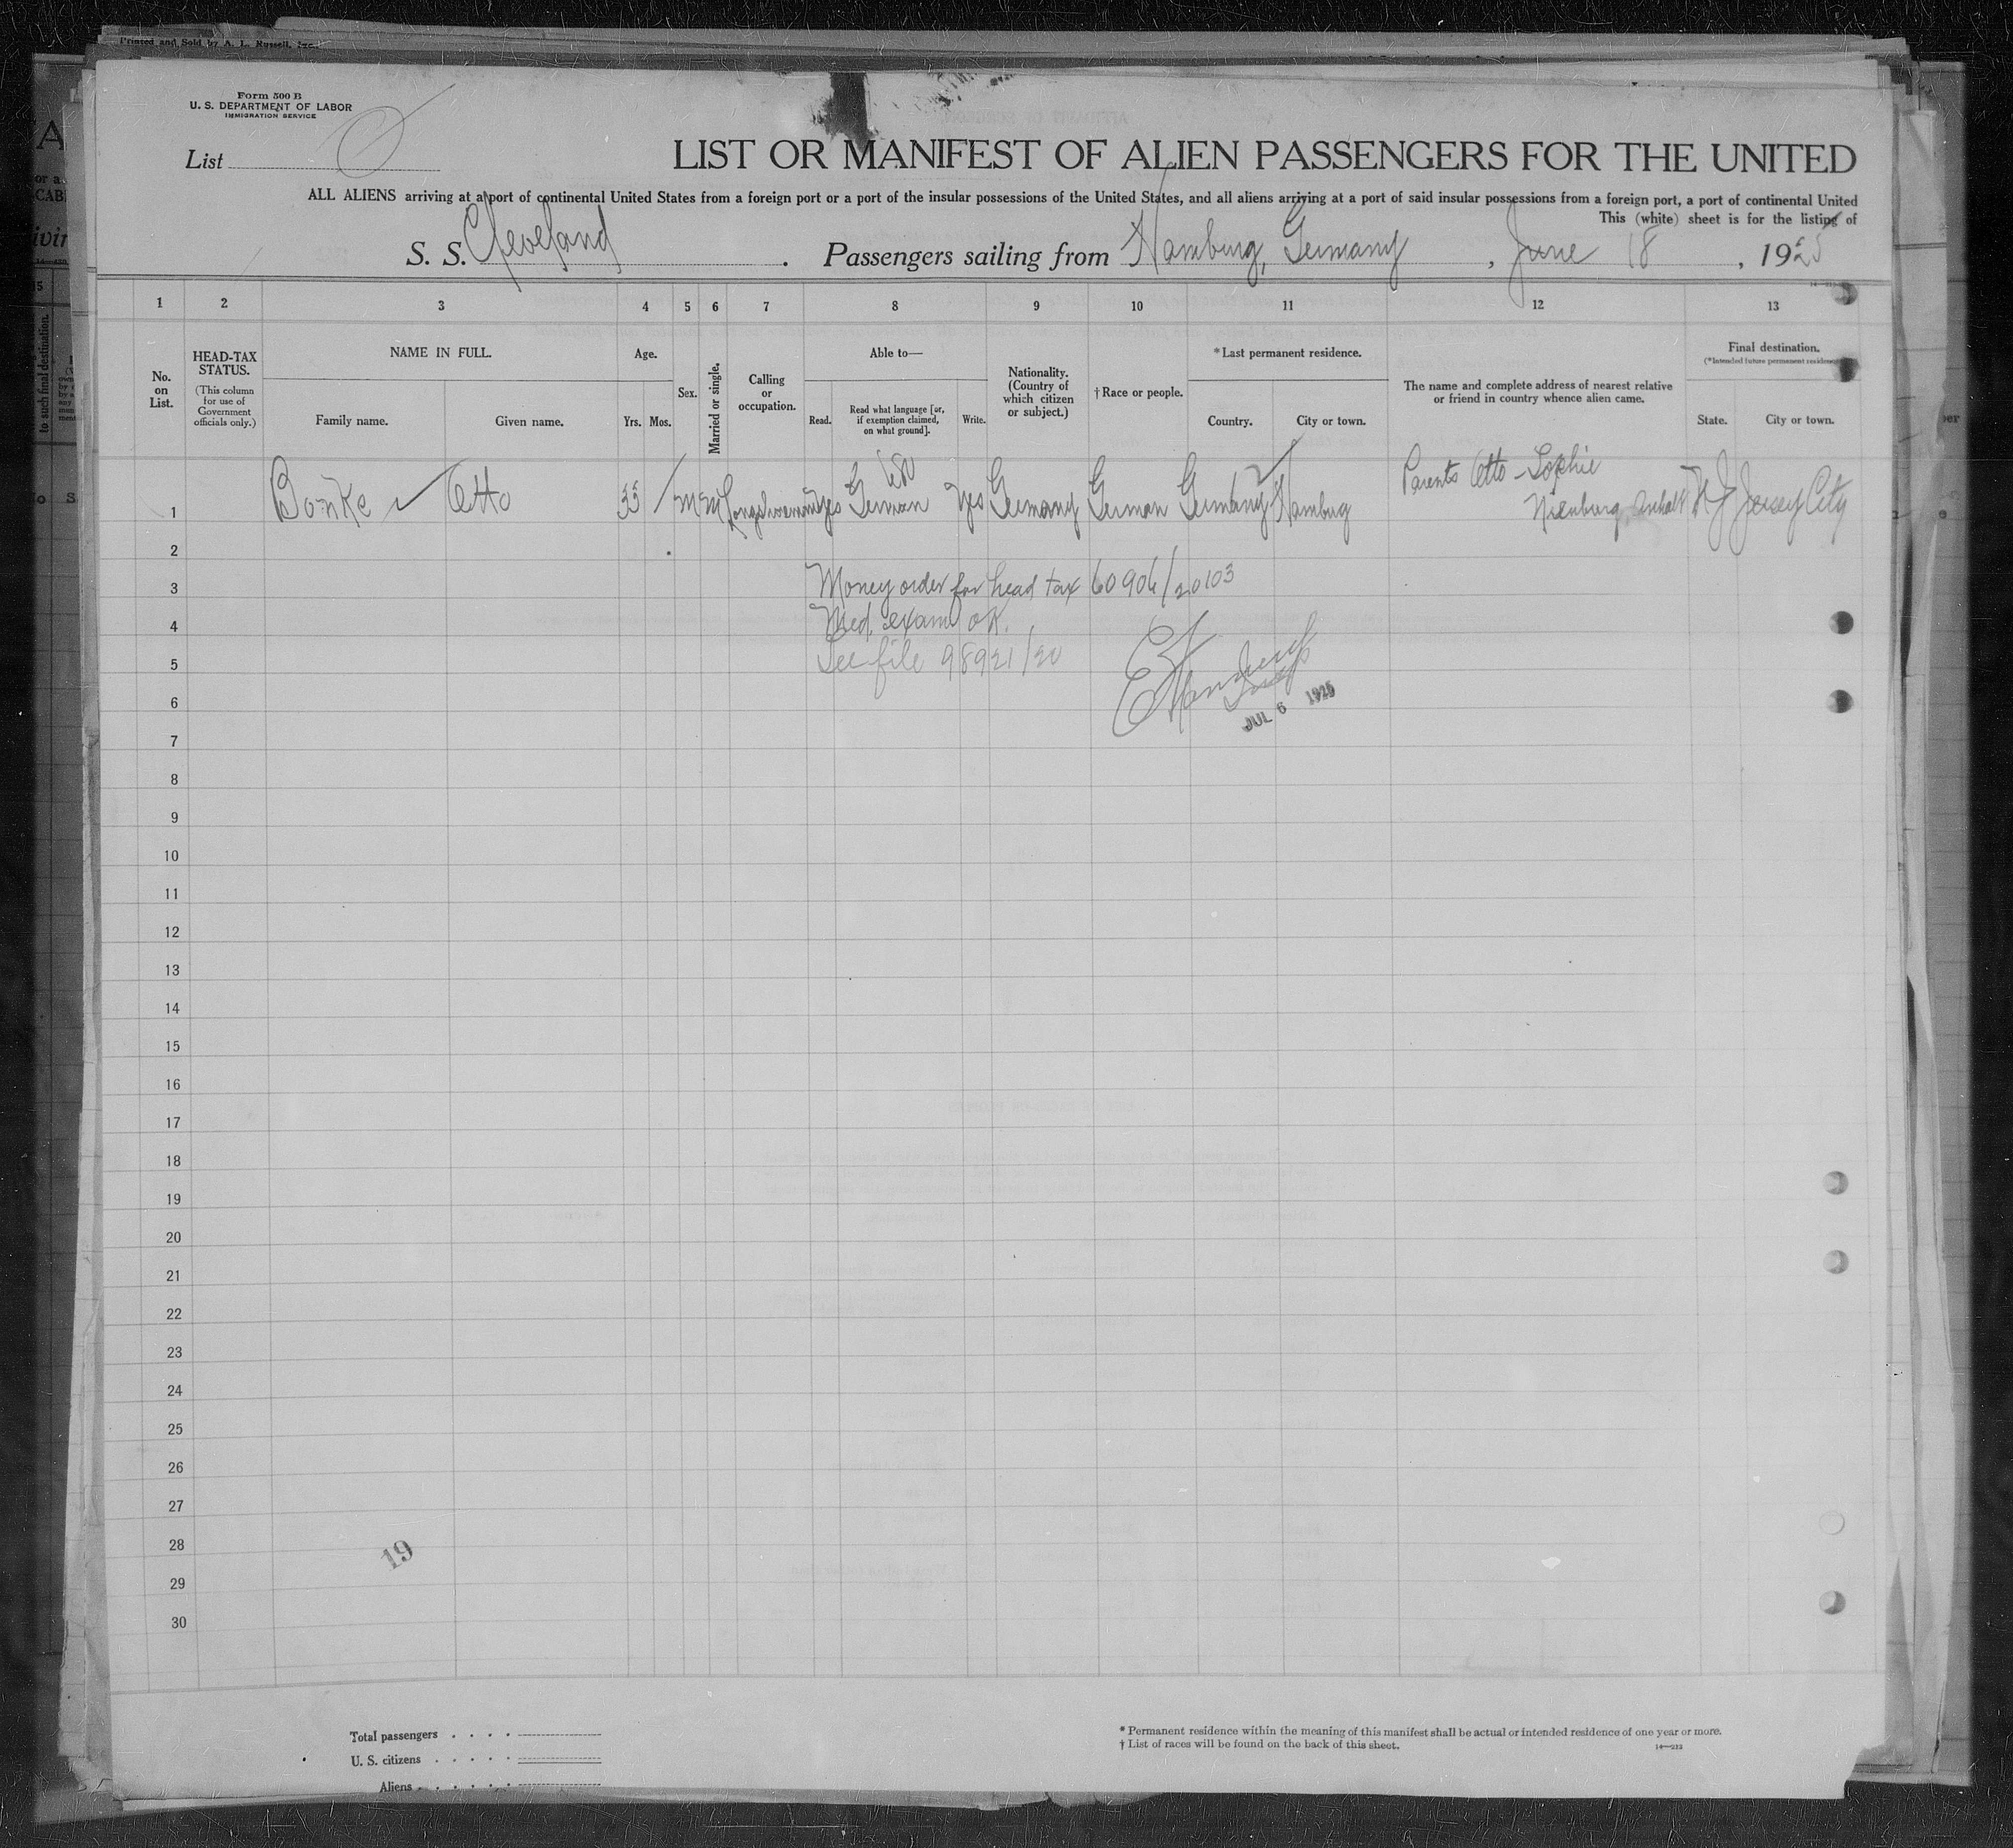 Printed and Sold by A. L. Russell, Inc.
Form 500 B
U. S. DEPARTMENT OF LABOR
IMMIGRATION SERVICE
List
LIST OR MANIFEST OF ALIEN PASSENGERS FOR THE UNITED
ALL ALIENS arriving at a port of continental United States from a foreign port or a port of the insular possessions of the United States, and all aliens arriving at a port of said insular possessions from a foreign port, a port of continental United
This (white) sheet is for the listing of
S. S. Cleveland . Passengers sailing from Hamburg, Germany , June 18 , 1925
1 2 3 4 5 6 7 8 9 10 11 12 13
No. on List.
HEAD-TAX STATUS.
(This column for use of Government officials only.)
NAME IN FULL.
Family name. Given name.
Age.
Yrs. Mos.
Sex.
Married or single.
Calling or occupation.
Able to—
Read. Read what language [or, if exemption claimed, on what ground]. Write.
Nationality. (Country of which citizen or subject.)
† Race or people.
* Last permanent residence.
Country. City or town.
The name and complete address of nearest relative or friend in country whence alien came.
Final destination.
(* Intended future permanent residence
State. City or town.
1 Bonke Otto 35 M M Longshoreman Yes German Yes Germany German Germany Hamburg Parents Otto - Sophie
Nienburg, Anhalt N J Jersey City
2
3 Money order for head tax 60906/20103
4 Med. exam OK.
5 See file 98921/20
6
JUL 6 1925
7
8
9
10
11
12
13
14
15
16
17
18
19
20
21
22
23
24
25
26
27
28
19
29
30
Total passengers
U. S. citizens
Aliens
* Permanent residence within the meaning of this manifest shall be actual or intended residence of one year or more.
† List of races will be found on the back of this sheet.
14—213